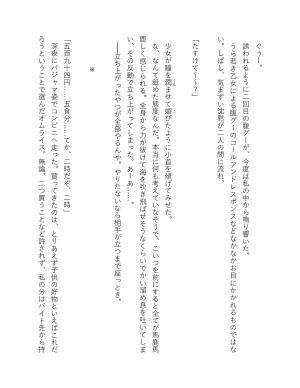 ぐぅー。
誘われるように二回目の腹グーが、今度は私の中から鳴り響いた。
うら若き乙女による腹グーのコールアンドレスポンスなどなかなかお目にかかれるものではな
い。しばし、気まずい沈黙が二人の間に流れ、
「たすけて〜〜？」
少女が瞳を潤ませて媚びたように小首を傾げてみせた。
な、なんて舐めた態度なんだ。本当に何も考えていなそうで、こいつを前にすると全てが馬鹿馬
鹿しく感じられる。全身から力が抜けて海を吹き飛ばせそうなくらいでかい溜め息を吐いてしま
い、その反動で立ち上がってしまった。あーあ……。
――立ち上がったやつが全部やるんや。やりたないなら相手が立つまで座っとき。
※
「五百九十四円……五食分……てか、二時だぞ、二時」
深夜にパジャマ姿でコンビニへ走った。買ってきたのは、とりあえず子供の好物といえばこれだ
ろうということで選んだオムライス。無論、二つ買うことなど許されず、私の分はバイト先から持